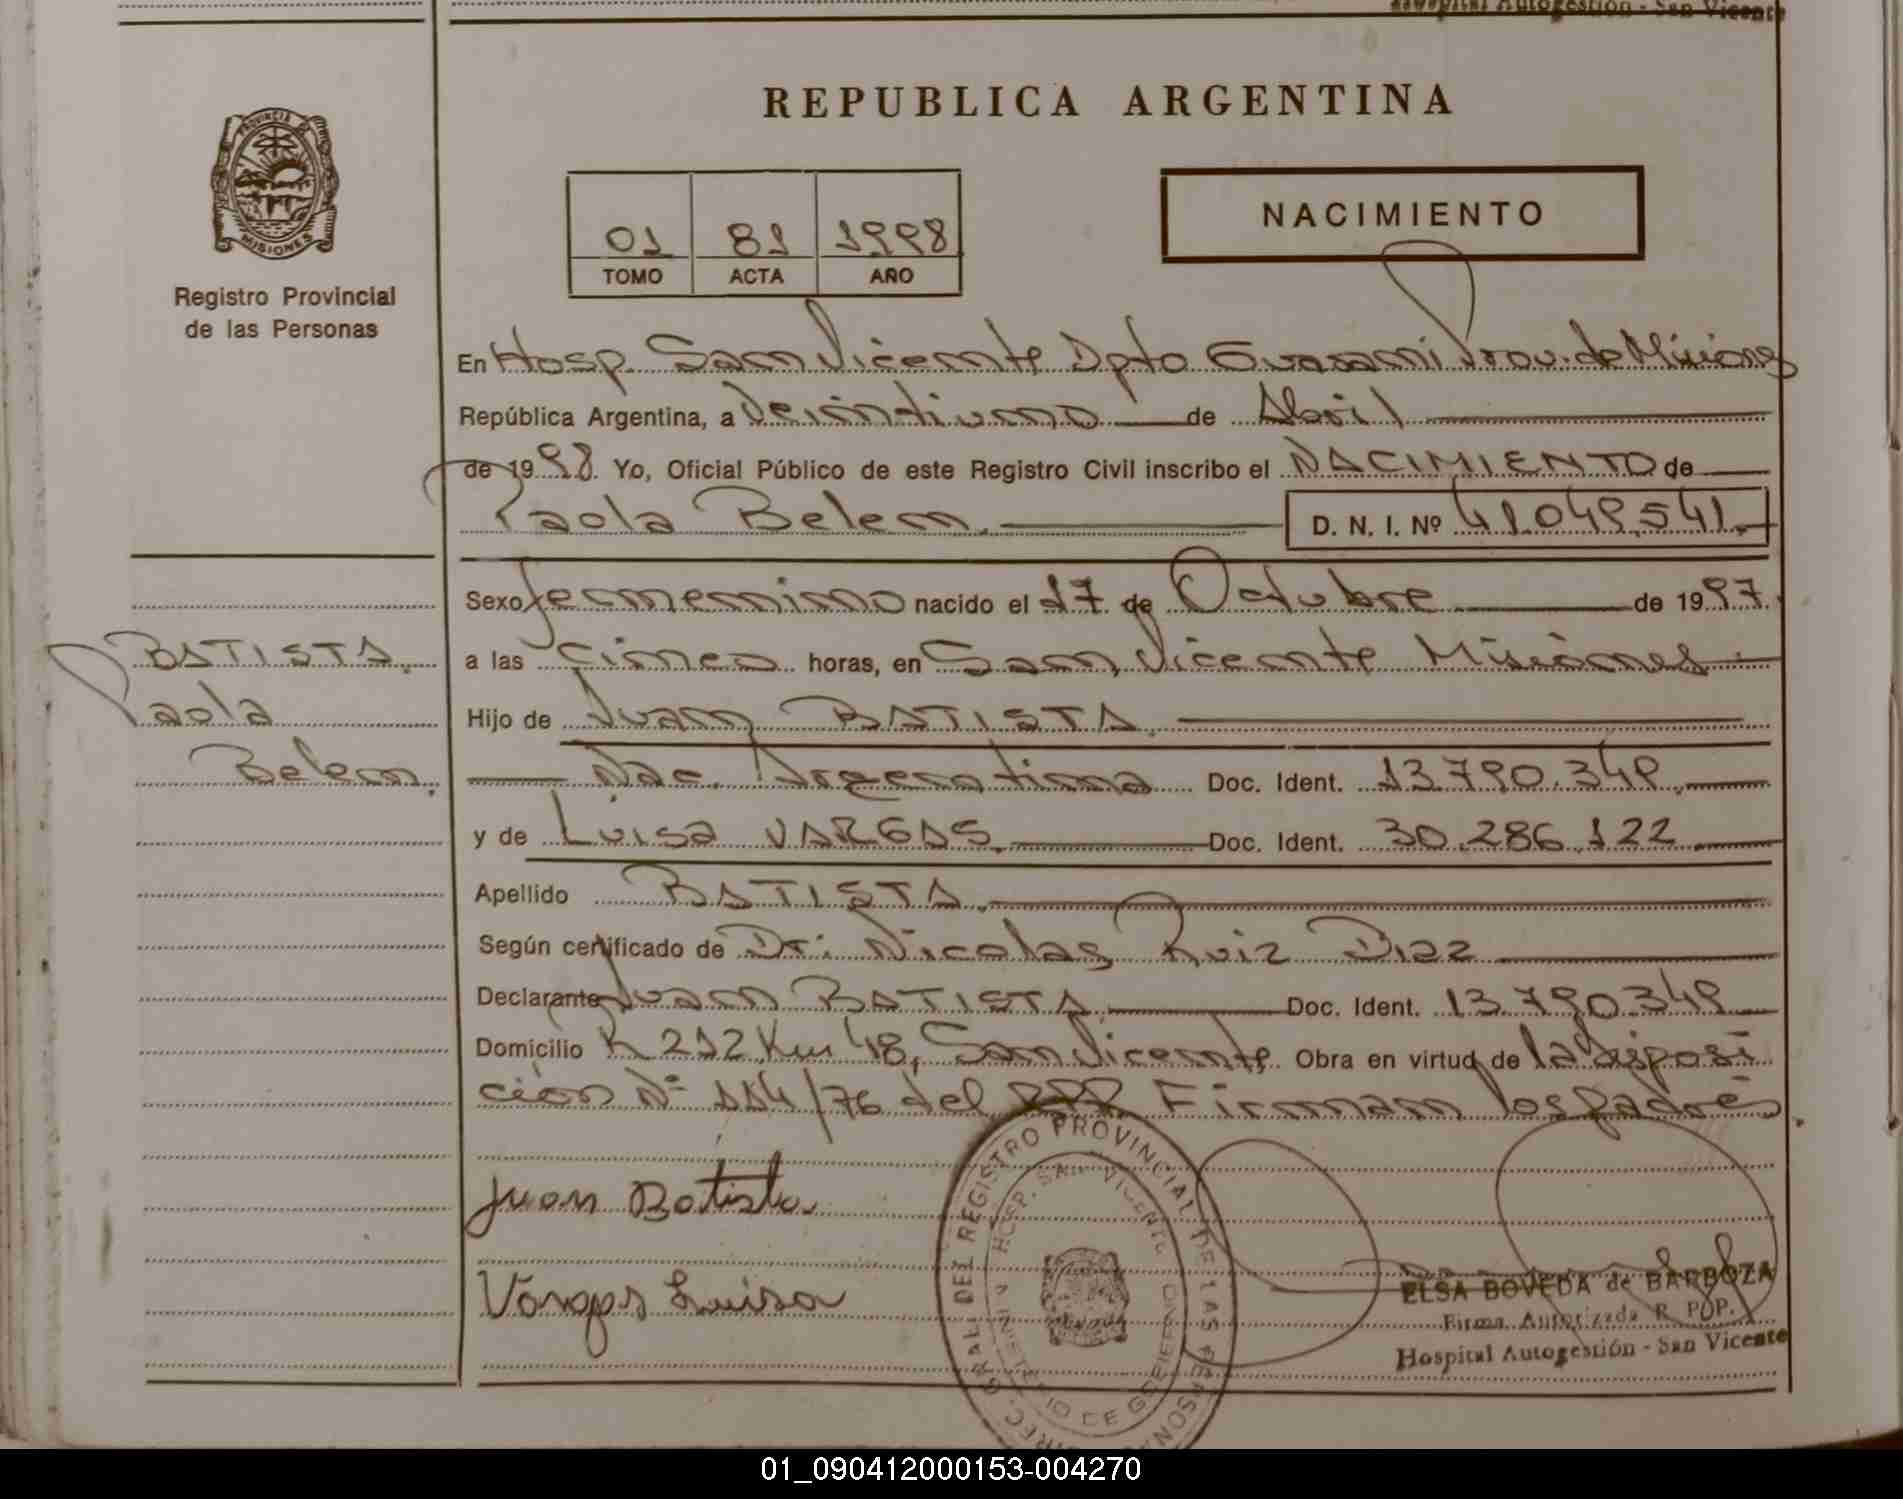 Hospital Autogestión - San Vicente
REPUBLICA ARGENTINA
PROVINCIA DE
MISIONES
Registro Provincial
de las Personas
01 81 1998
TOMO ACTA AÑO
NACIMIENTO
En Hosp. San Vicente Dpto Guarani Prov. de Misiones
República Argentina, a Veintiuno de Abril
de 1998. Yo, Oficial Público de este Registro Civil inscribo el NACIMIENTO de
Paola Belem. D. N. I. Nº 41.049.541.
Sexo femenino nacido el 17 de Octubre de 1997.
BATISTA.
Paola
Belem.
a las cinco horas, en San Vicente Misiones
Hijo de Juan BATISTA.
Nac. Argentina Doc. Ident. 13.790.349.
y de Luisa VARGAS. Doc. Ident. 30.286.122.
Apellido BATISTA.
Según certificado de Dr: Nicolas Ruiz Diaz
Declarante Juan BATISTA. Doc. Ident. 13.790.349
Domicilio R 212 Km 48, San Vicente. Obra en virtud de la disposi
ción Nº 114/76 del RPP. Firman los padres.
Juan Batista
Vargas Luisa
DIREC. GRAL. DEL REGISTRO PROVINCIAL DE LAS PERSONAS
HOSP. SAN VICENTE
MINISTERIO DE GOBIERNO
ELSA BOVEDA de BARBOZA
Firma Autorizada R. P. P.
Hospital Autogestión - San Vicente
01_090412000153-004270